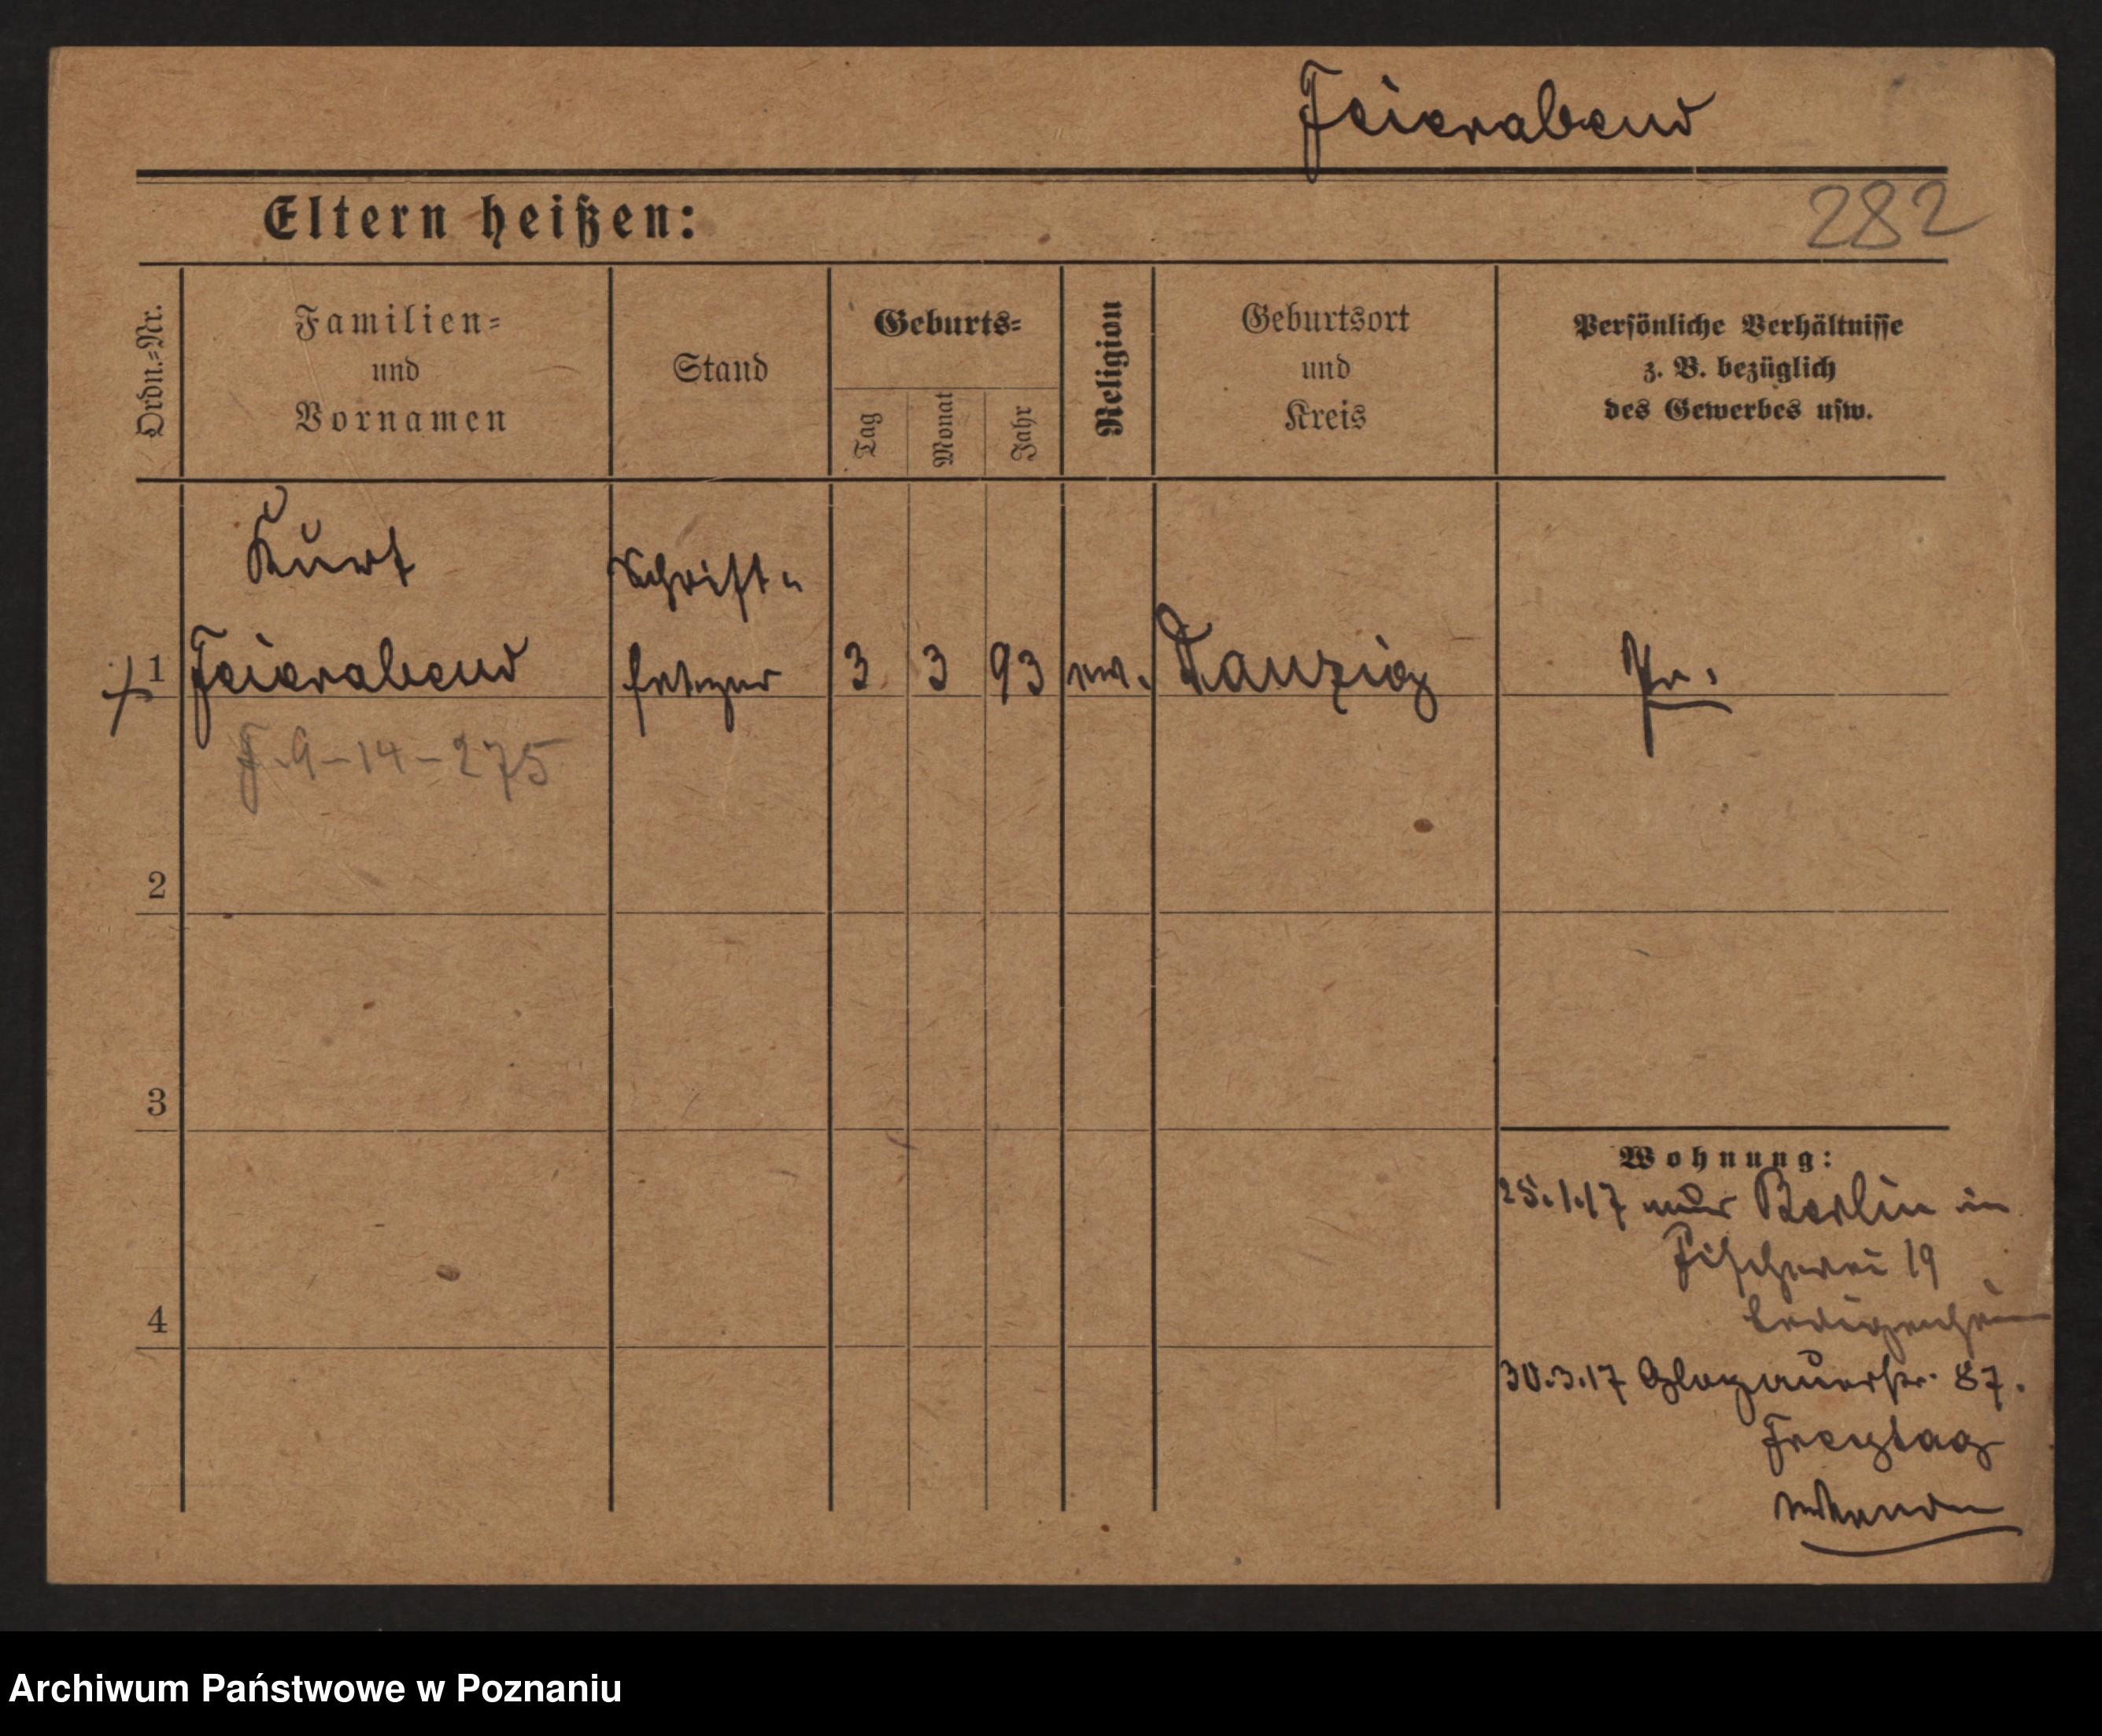 Feierabend
Eltern heißen:
282
Ordn.=Nr.
Familien=
und
Vornamen
Stand
Geburts=
Tag
Monat
Jahr
Religion
Geburtsort
und
Kreis
Persönliche Verhältnisse
z. B. bezüglich
des Gewerbes usw.
Kurt
Schrift-
1 Feierabend setzer 3 3 93 Danzig Pr.
F. 9-14-275
2
3
4
Wohnung:
25.1.17 Berlin in
Fischerei 19
Ledigenheim
30.3.17 Glogauerstr. 87.
Freytag
Archiwum Państwowe w Poznaniu